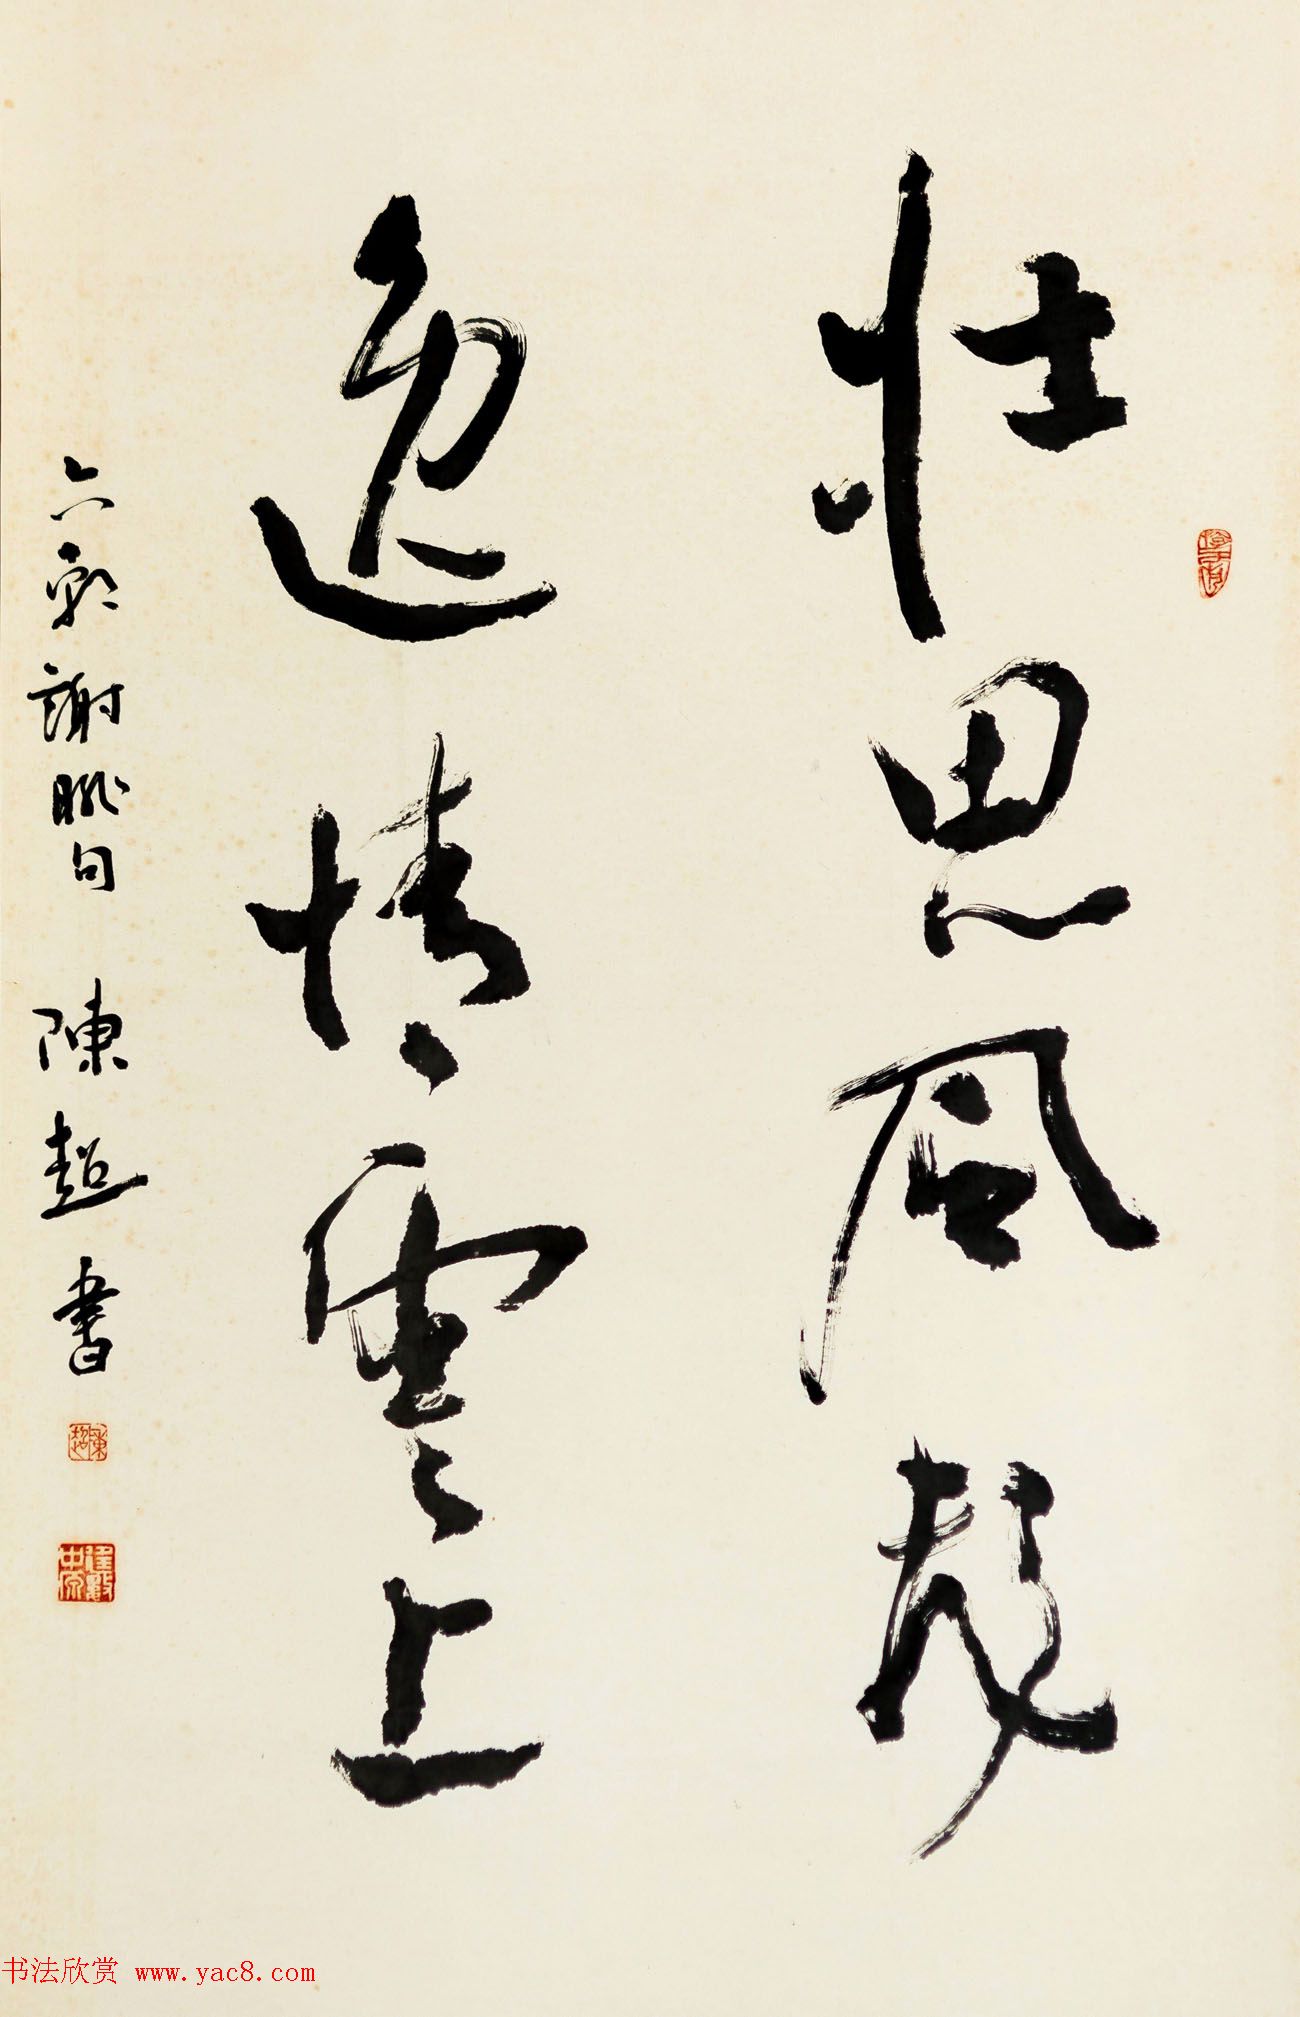 壯思風發
逸情雲上
六朝謝朓句 陳超書
陳超
中原
书法欣赏 www.yac8.com